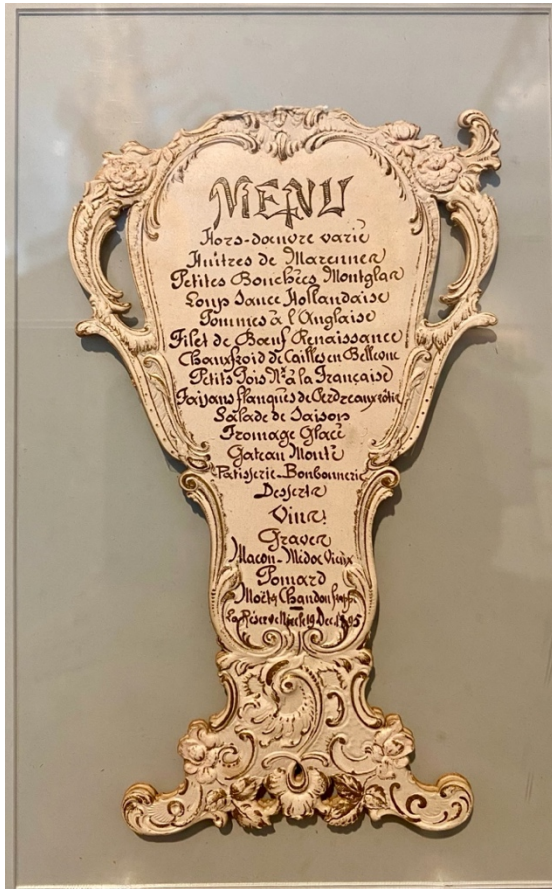 MENU
Hors-doeuvre varié
Huitres de Marennes
Petites Bouchées Montglas
Loup Sauce Hollandaise
Pommes à l'Anglaise
Filet de Bœuf Renaissance
Chaufroid de Cailles en Bellevue
Petits Pois Nx à la Française
Faisans flanqués de Perdreaux rôtis
Salade de Saison
Fromage Glacé
Gateau Monté
Patisserie-Bonbonnerie
Desserts
Vins:
Graves
Macon-Médoc Vieux
Pomard
Moëts Chandon frappé
La Réserve Nice le 19 Dec. 1895